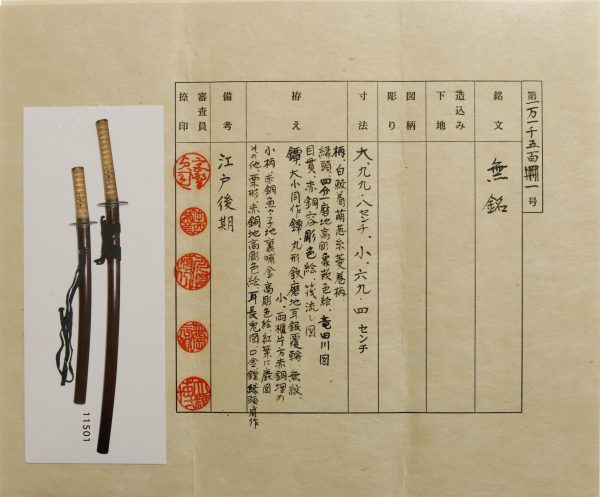 第一万一千五百一号
銘文
無銘
造込み
下地
図柄
彫り
寸法
大、九九・八センチ、小、六九・四センチ
拵え
柄、白鮫着萌葱糸菱巻柄
縁頭、四分一磨地高彫象嵌色絵、竜田川図
目貫、赤銅容彫色絵、筏流し図
鐔、大小同作鐔、丸形鉄磨地耳銀覆輪無紋、
小、両櫃片方赤銅埋め
小柄、赤銅魚々子地裏哺金高彫色絵紅葉に鹿図
その他、栗形、赤銅地高彫色絵、耳長兎図、口金鐺縁頭同作
備考
江戸後期
審査員
捺印
11501